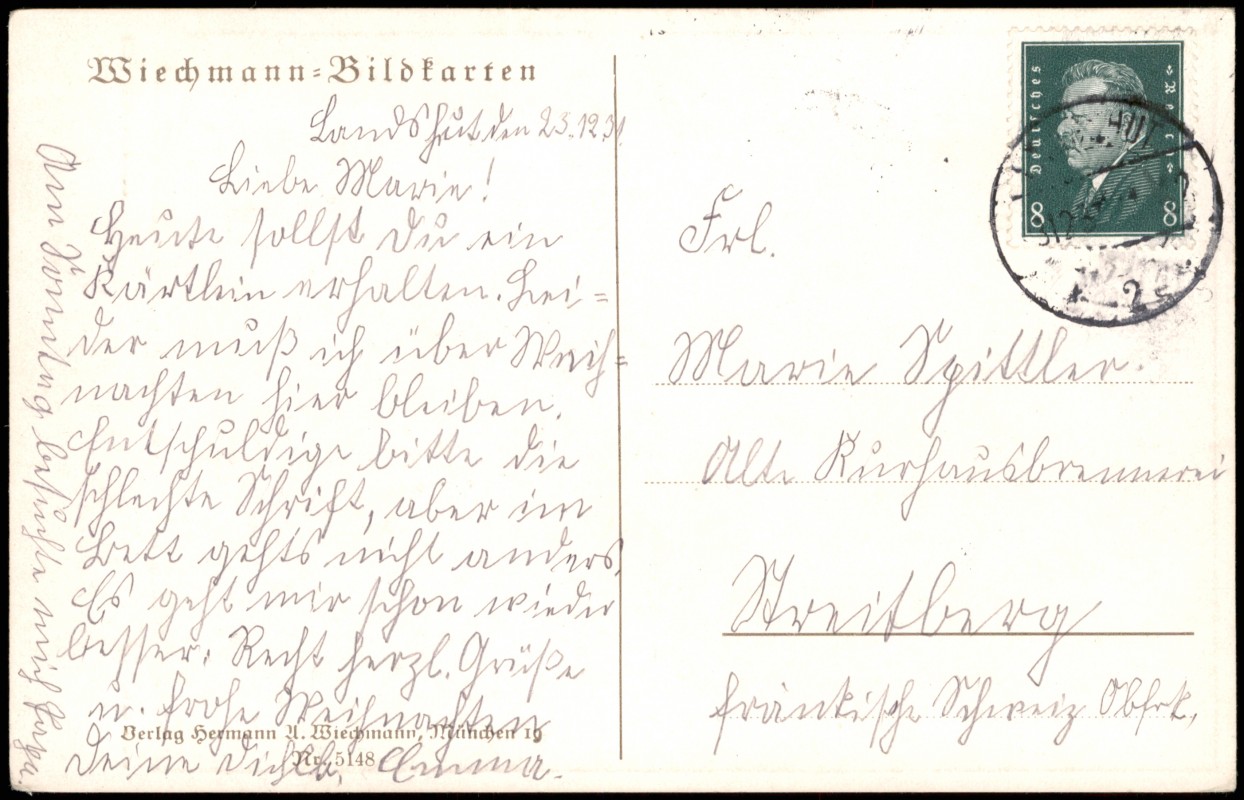 Wiechmann=Bildkarten
Landshut den 23.12.31
Liebe Marie!
Heute sollst Du ein
Kärtlein erhalten. Lei=
der muß ich über Weih=
nachten hier bleiben.
Entschuldige bitte die
schlechte Schrift, aber im
Bett gehts nicht anders.
Es geht mir schon wieder
besser. Recht herzl. Grüße
u. frohe Weihnachten
Verlag Hermann A. Wiechmann, München 19
Nr. 5148
Deine Dichlb. Emma.
Am Sonntag besuchte mich Papa.
Deutsches Reich
8 8
Frl.
Marie Spittler.
Alte Kurhausbrennerei
Streitberg
fränkische Schweiz Obfrk.